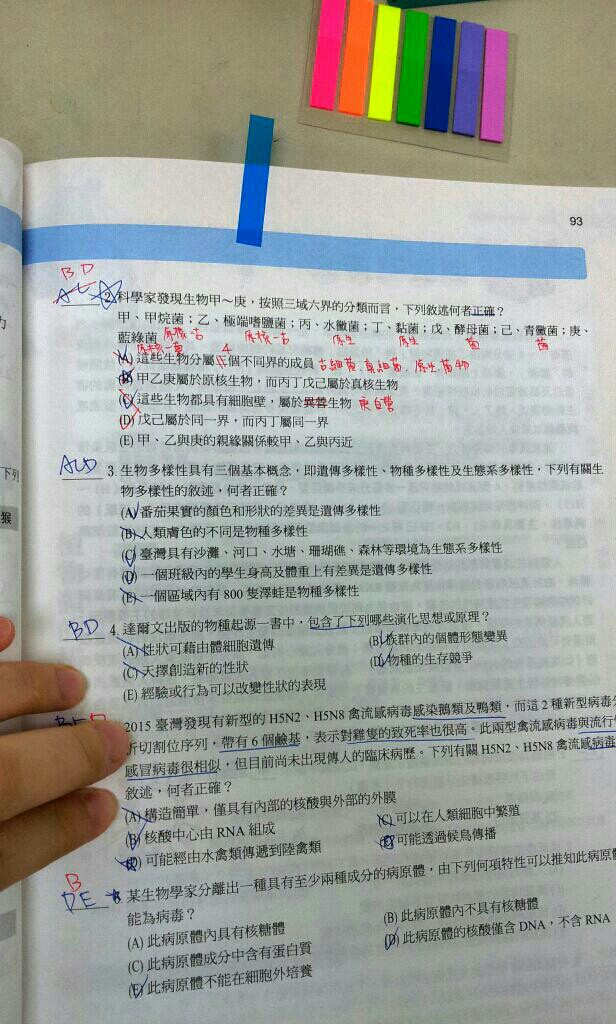 93
BD
2. 科學家發現生物甲～庚，按照三域六界的分類而言，下列敘述何者正確？
甲、甲烷菌；乙、極端嗜鹽菌；丙、水黴菌；丁、黏菌；戊、酵母菌；己、青黴菌；庚、
藍綠菌 原核-古 原核-古 原生 原生 菌 菌
原核-真 4
(A) 這些生物分屬 個不同界的成員 古細菌.真細菌.原生.菌物
(B) 甲乙庚屬於原核生物，而丙丁戊己屬於真核生物
(C) 這些生物都具有細胞壁，屬於異營生物 庚自營
(D) 戊己屬於同一界，而丙丁屬同一界
(E) 甲、乙與庚的親緣關係較甲、乙與丙近
ACD 3. 生物多樣性具有三個基本概念，即遺傳多樣性、物種多樣性及生態系多樣性，下列有關生
物多樣性的敘述，何者正確？
(A) 番茄果實的顏色和形狀的差異是遺傳多樣性
(B) 人類膚色的不同是物種多樣性
(C) 臺灣具有沙灘、河口、水塘、珊瑚礁、森林等環境為生態系多樣性
(D) 一個班級內的學生身高及體重上有差異是遺傳多樣性
(E) 一個區域內有 800 隻澤蛙是物種多樣性
BD 4. 達爾文出版的物種起源一書中，包含了下列哪些演化思想或原理？
(A) 性狀可藉由體細胞遺傳 (B) 族群內的個體形態變異
(C) 天擇創造新的性狀 (D) 物種的生存競爭
(E) 經驗或行為可以改變性狀的表現
2015 臺灣發現有新型的 H5N2、H5N8 禽流感病毒感染鵝類及鴨類，而這 2 種新型病毒
析切割位序列，帶有 6 個鹼基，表示對雞隻的致死率也很高。此兩型禽流感病毒與流行
感冒病毒很相似，但目前尚未出現傳人的臨床病歷。下列有關 H5N2、H5N8 禽流感病毒
敘述，何者正確？
(A) 構造簡單，僅具有內部的核酸與外部的外膜
(B) 核酸中心由 RNA 組成 (C) 可以在人類細胞中繁殖
(D) 可能經由水禽類傳遞到陸禽類 (E) 可能透過候鳥傳播
B
DE 某生物學家分離出一種具有至少兩種成分的病原體，由下列何項特性可以推知此病原
能為病毒？
(A) 此病原體內具有核糖體 (B) 此病原體內不具有核糖體
(C) 此病原體成分中含有蛋白質 (D) 此病原體的核酸僅含 DNA，不含 RNA
(E) 此病原體不能在細胞外培養
下列
猴
力